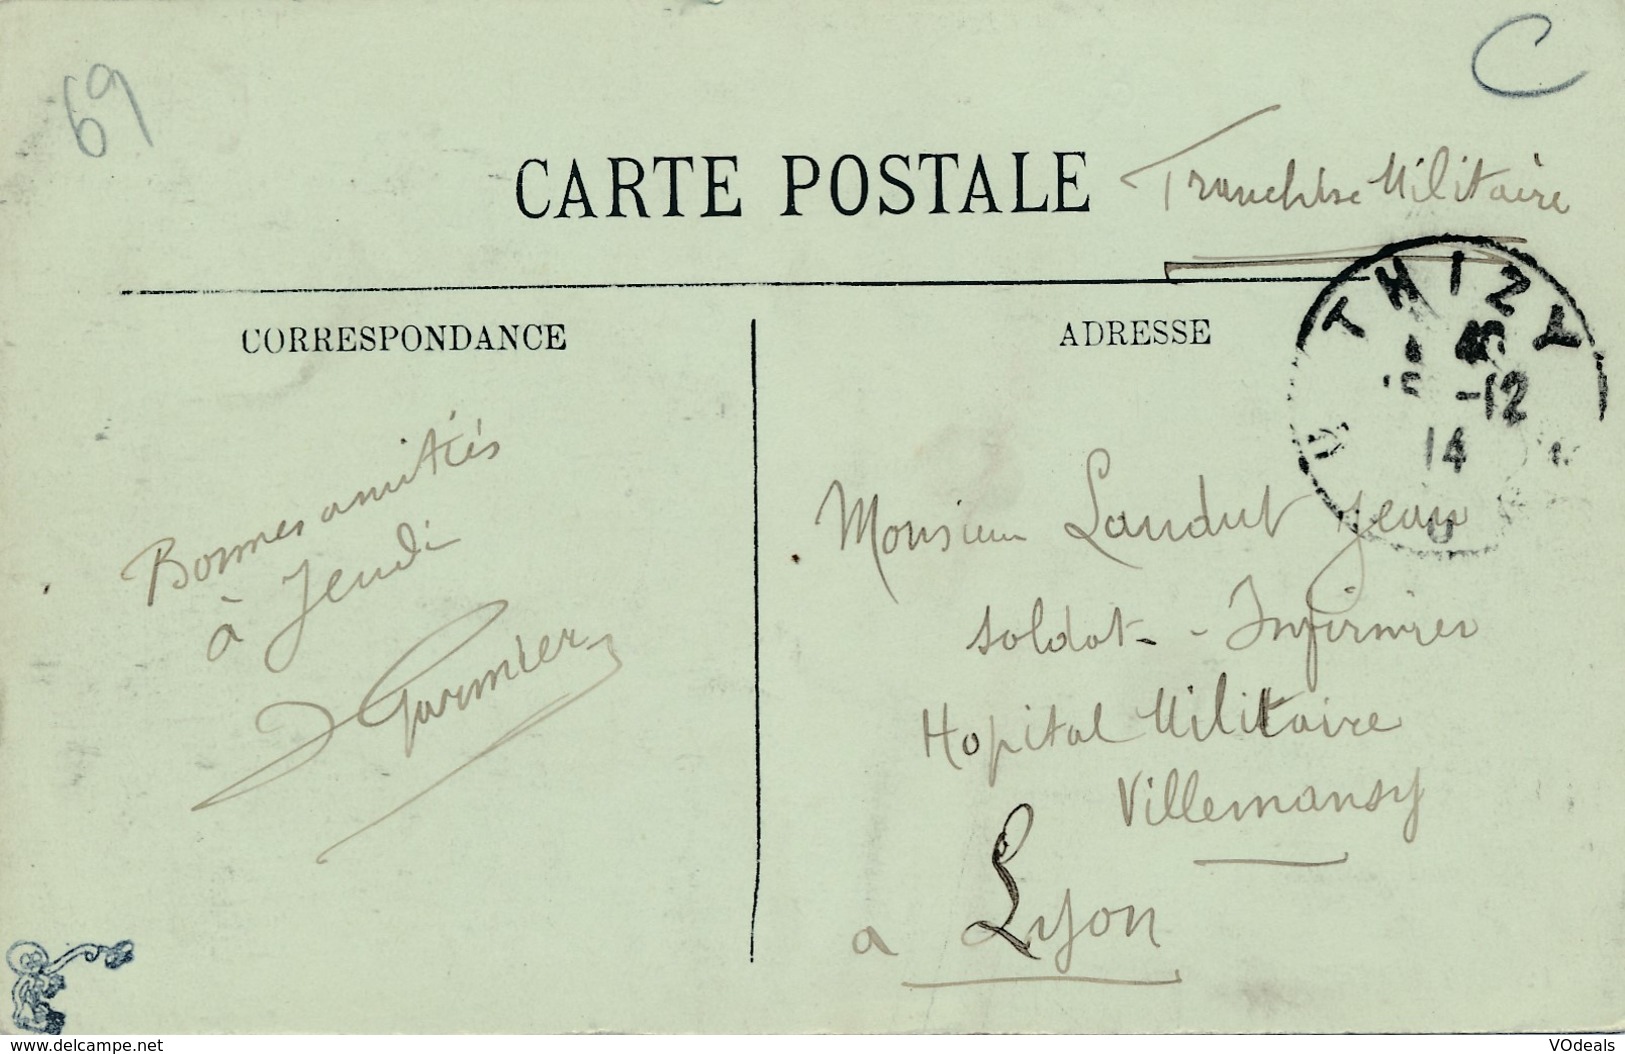 69
C
CARTE POSTALE
Franchise Militaire
CORRESPONDANCE
ADRESSE
THIZY
-12
14
Bonnes amitiés
à Jeudi
Garnier
Monsieur Landut Jean
soldat - Infirmier
Hopital Militaire
Villemansy
a Lyon
www.delcampe.net
VOdeals